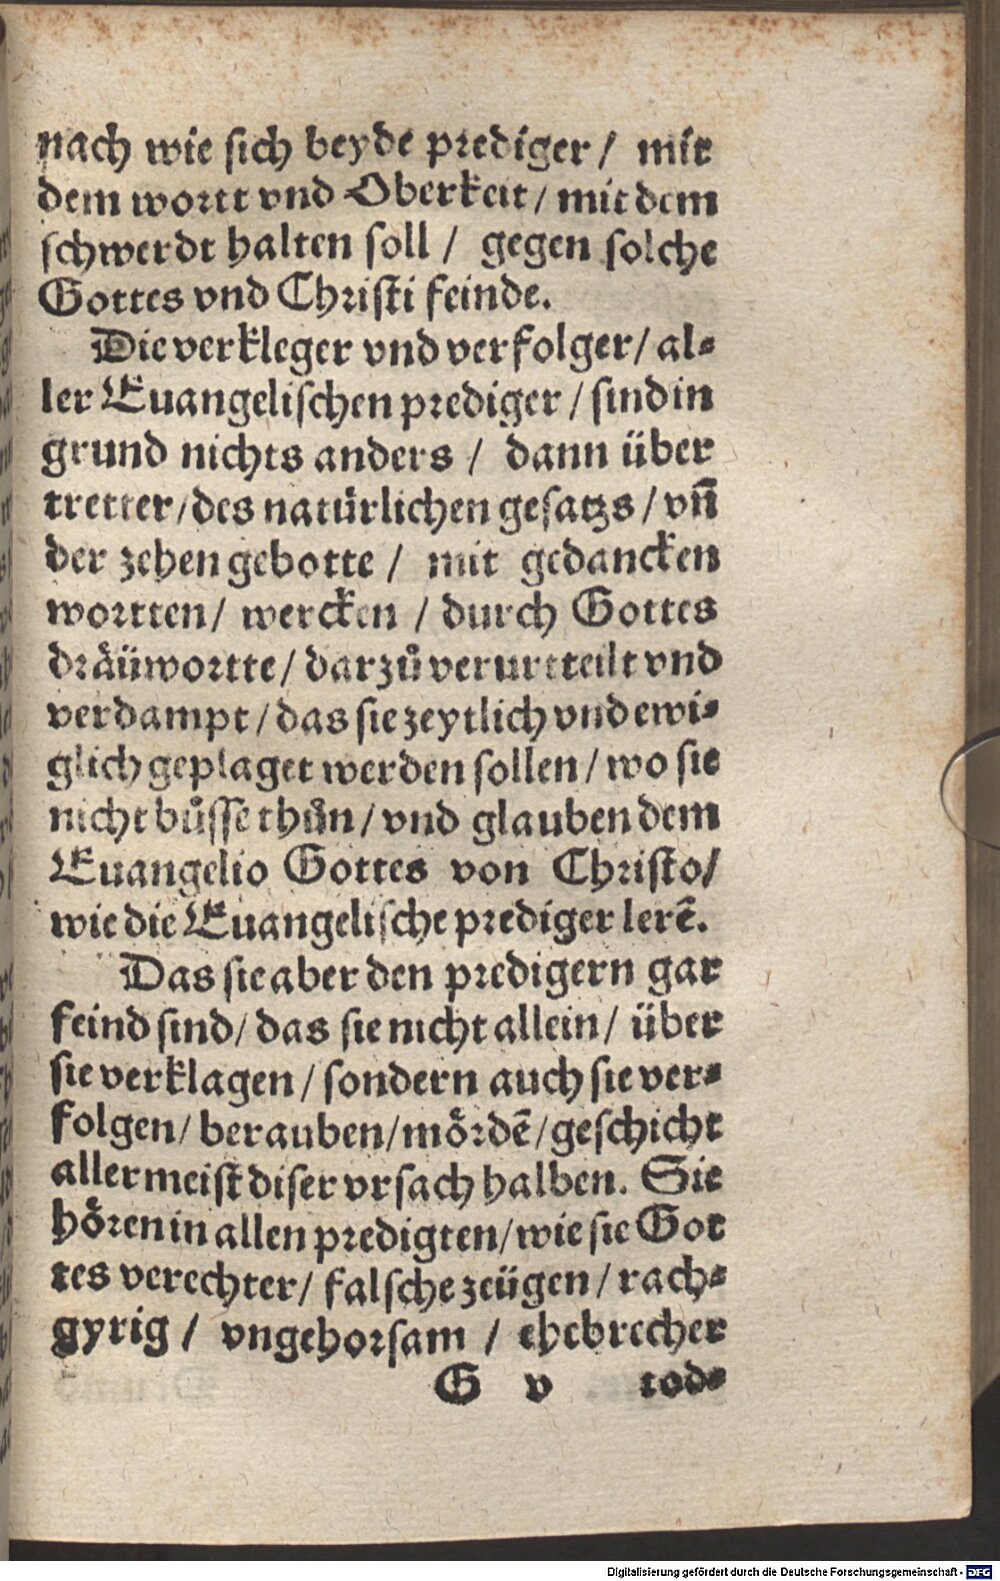 nach wie sich beyde prediger / mit
dem wortt vnd Oberkeit / mit dem
schwerdt halten soll / gegen solche
Gottes vnd Christi feinde.
Die verkleger vnd verfolger / al⸗
ler Euangelischen prediger / sind in
grund nichts anders / dann über
tretter / des natürlichen gesatzs / vn̄
der zehen gebotte / mit gedancken
wortten / wercken / durch Gottes
dräüwortte / darzů verurtteilt vnd
verdampt / das sie zeytlich vnd ewi⸗
glich geplaget werden sollen / wo sie
nicht bůsse thůn / vnd glauben dem
Euangelio Gottes von Christo /
wie die Euangelische prediger lerē.
Das sie aber den predigern gar
feind sind / das sie nicht allein / über
sie verklagen / sondern auch sie ver⸗
folgen / berauben / mördē / geschicht
allermeist diser vrsach halben. Sie
hören in allen predigten / wie sie Got
tes verechter / falsche zeügen / rach⸗
gyrig / vngehorsam / ehebrecher
G v tod⸗
Digitalisierung gefördert durch die Deutsche Forschungsgemeinschaft - DFG